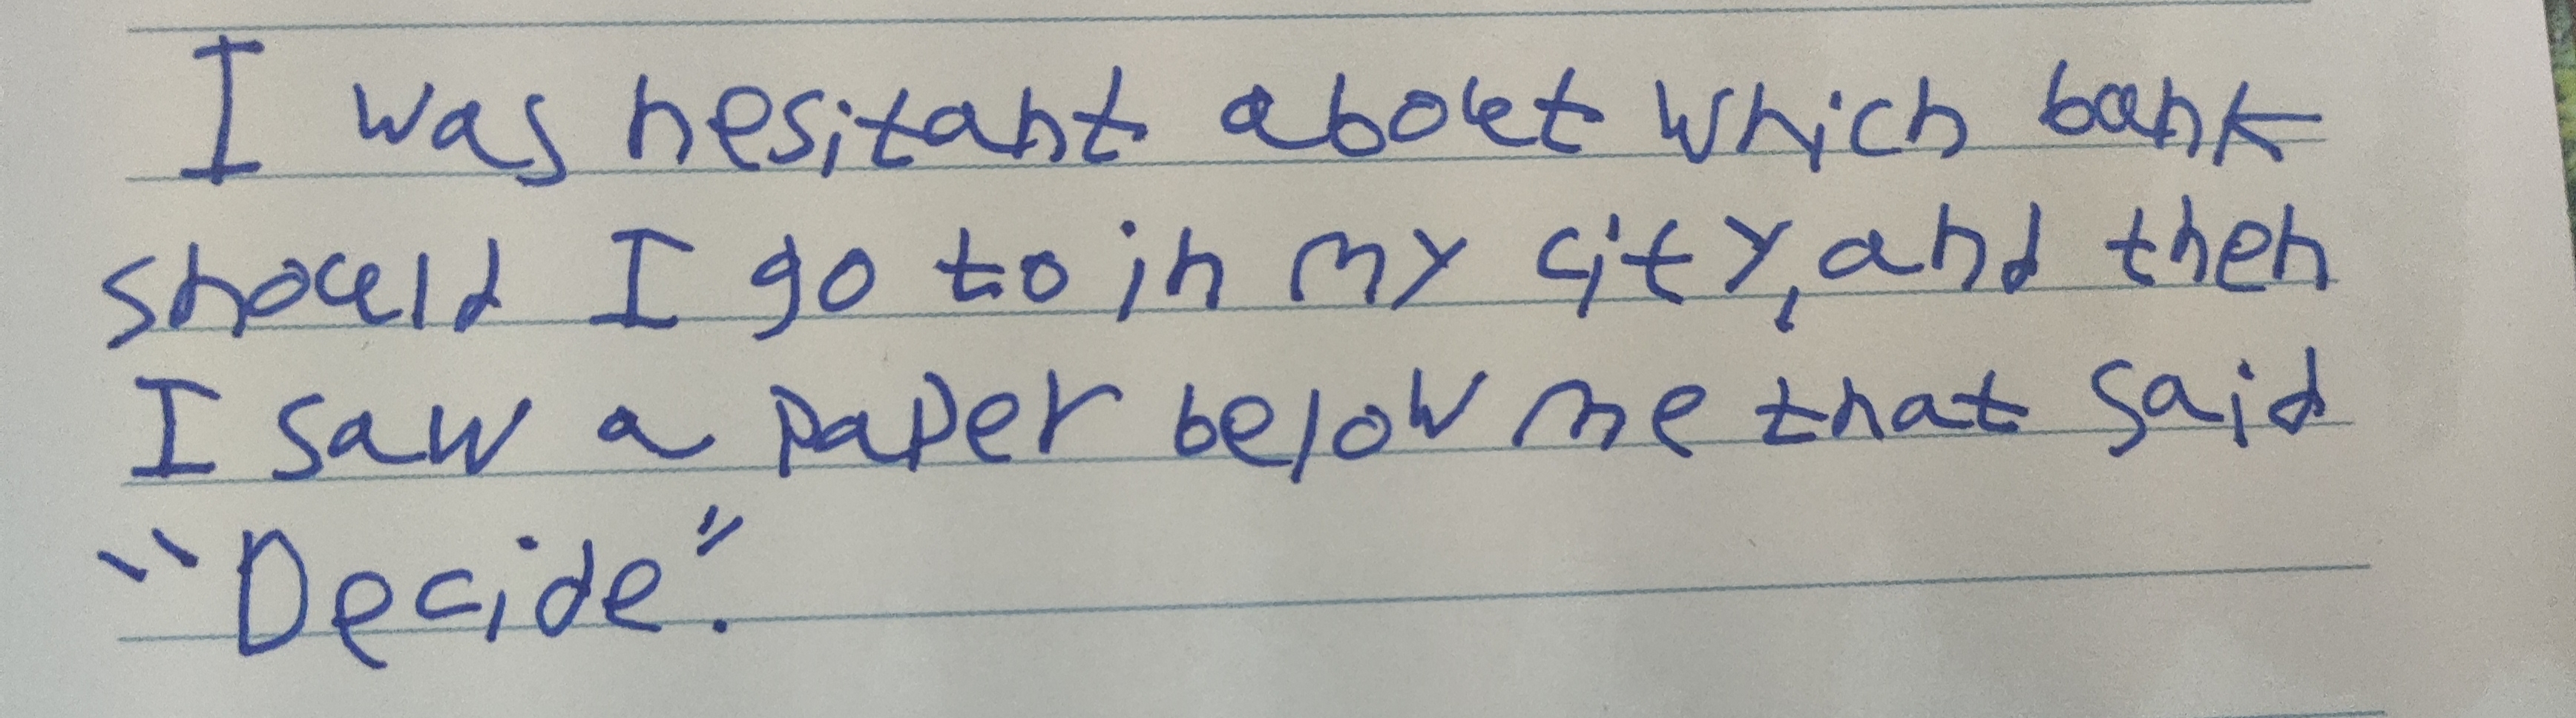 I was hesitant about which bank
should I go to in my city, and then
I saw a paper below me that said
"Decide".